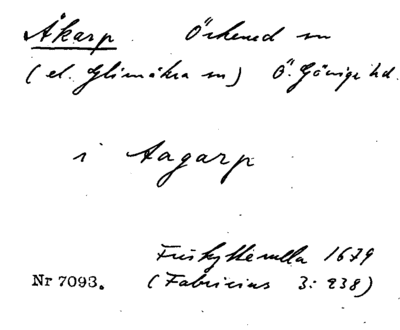 Åkarp Örkened sn
(el. Glimåkra sn) Ö. Göinge hd.
i Aagarp
Friskytterulla 1679
Nr 7093. (Fabricius 3: 238)